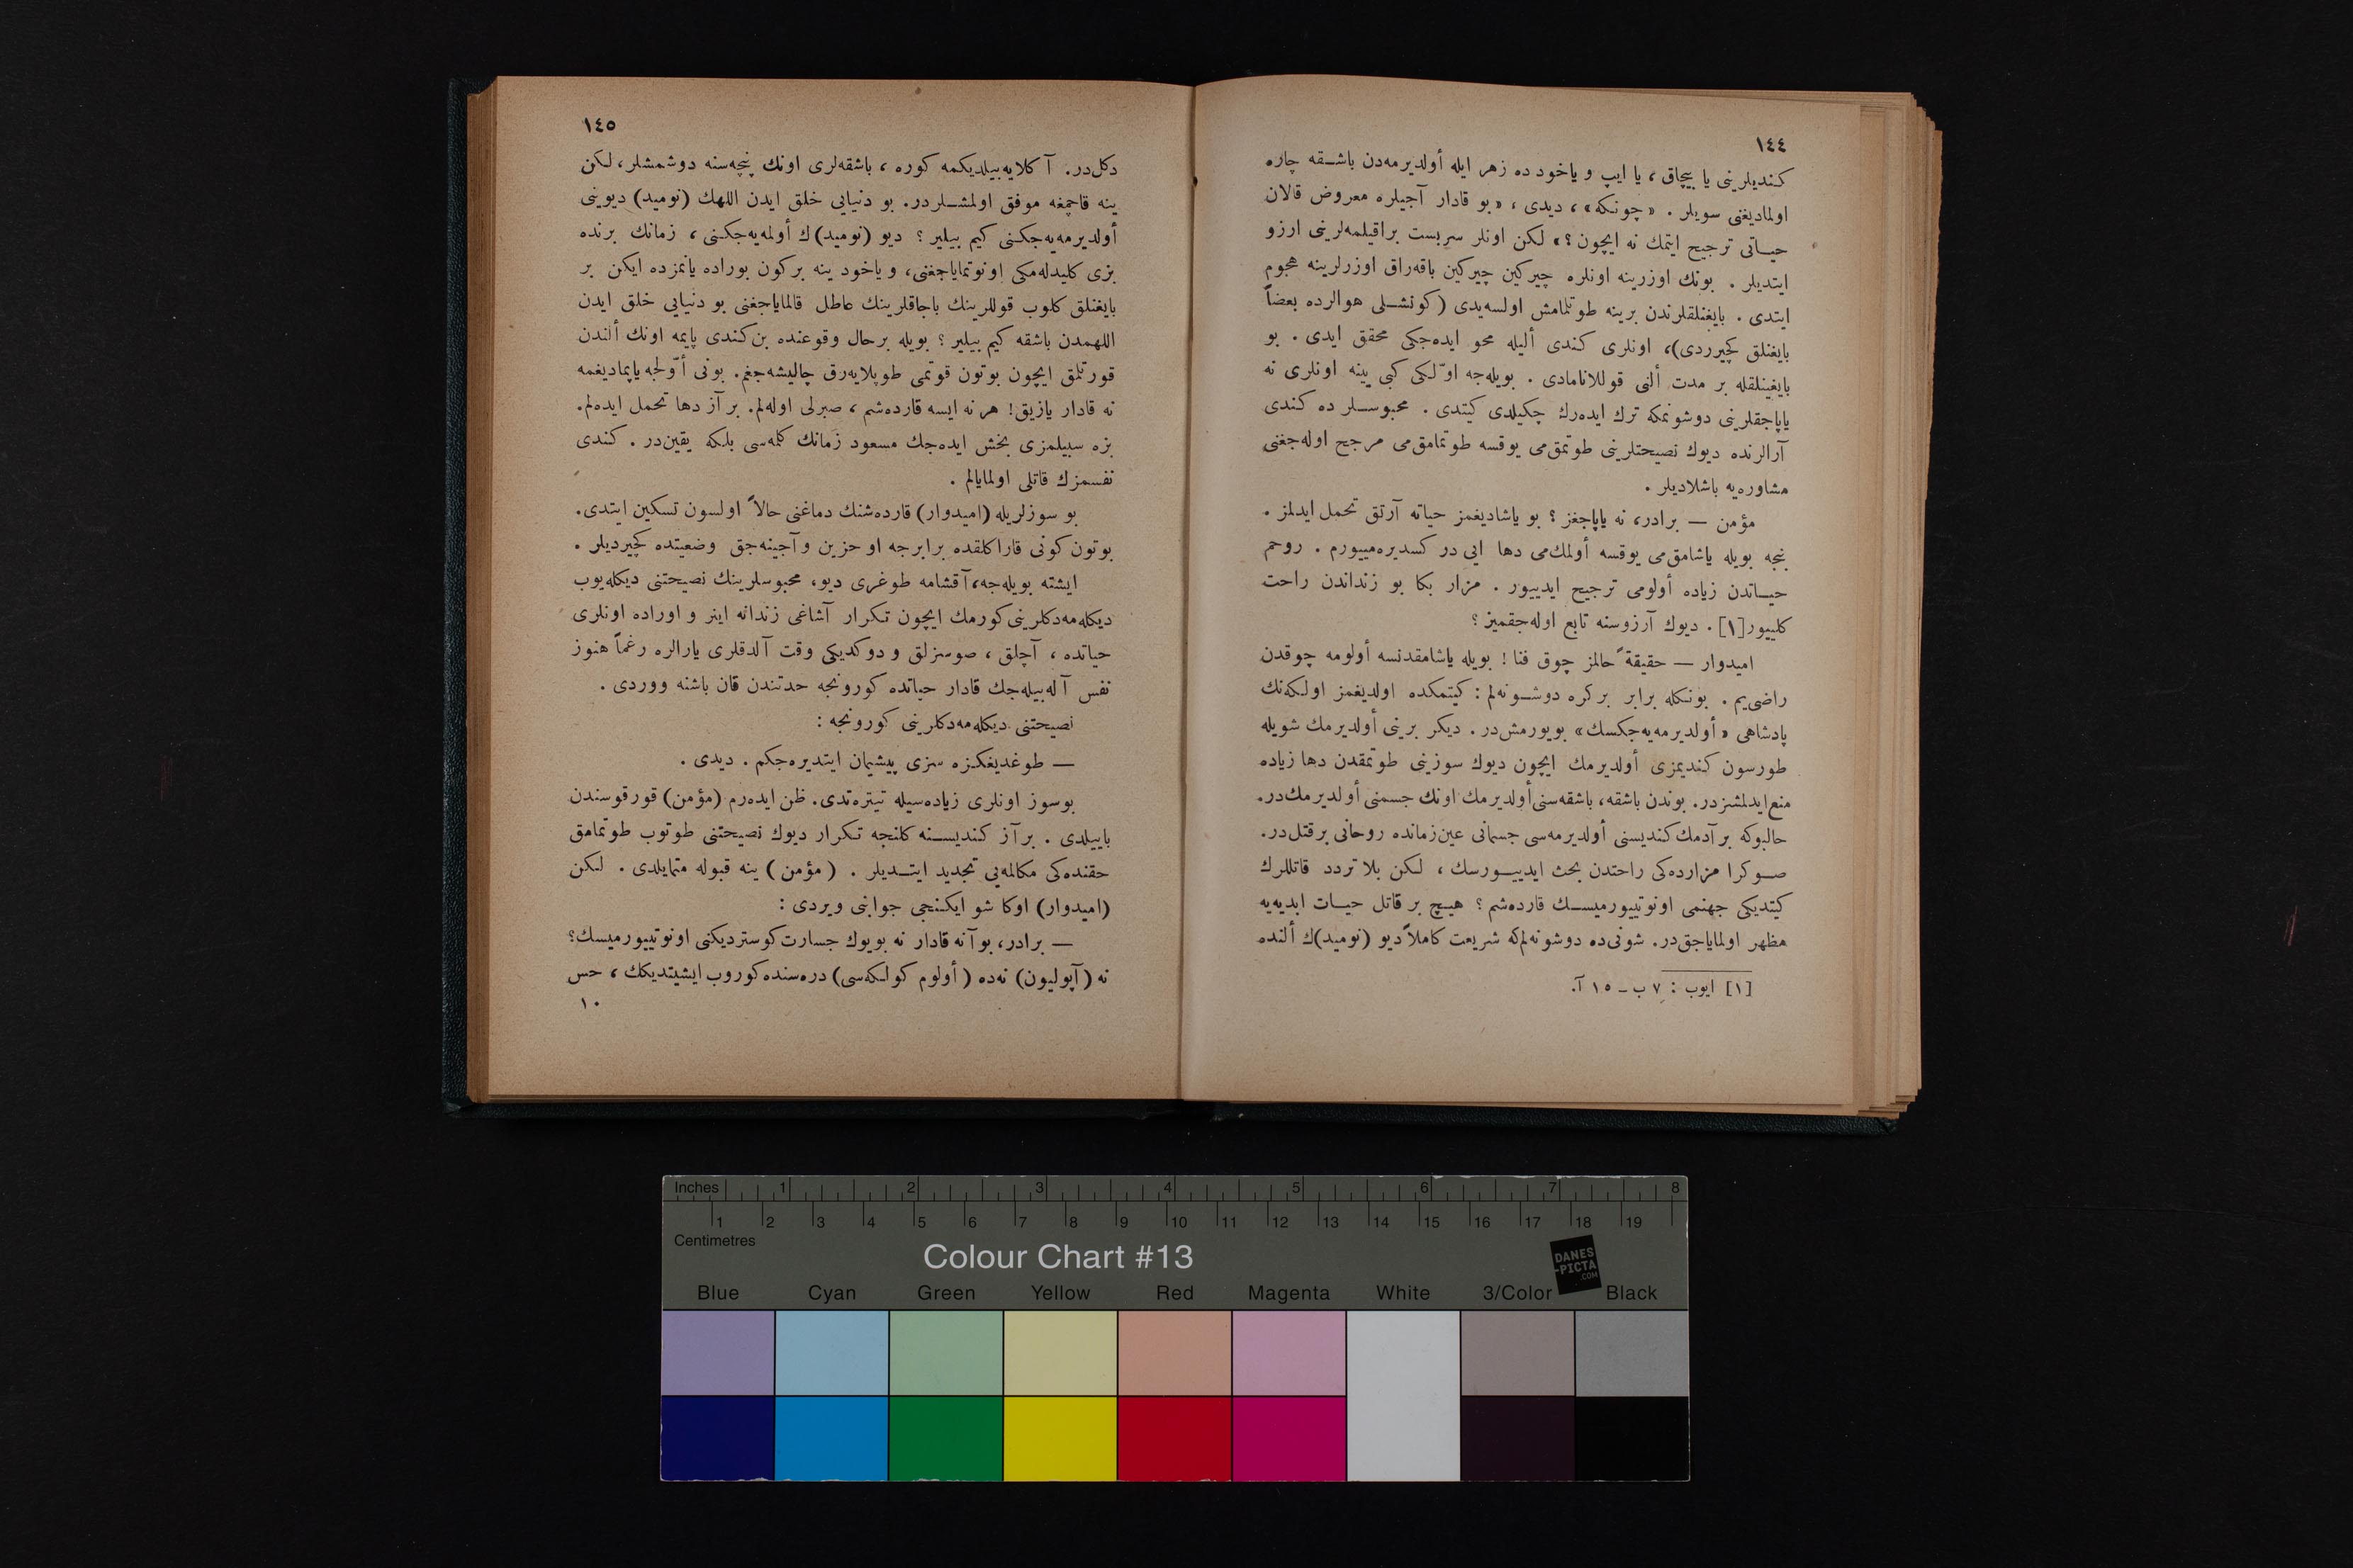 ١٤٤
كندیلرینی یا بیچاق، یا ایپ و یاخود ده زهر ایله أولدیرمه‌دن باشقه چاره
اولمادیغنی سویلر . «چونكه»، دیدی، «بو قادار آجیلره معروض قالان
حیاتی ترجیح ایتمك نه ایچون؟» لكن اونلر سربست براقیلمه‌لرینی ارزو
ایتدیلر . بونك اوزرینه اونلره چیركین چیركین باقه‌راق اوزرلرینه هجوم
ایتدی . بایغنلقلرندن برینه طوتلمامش اولسه‌یدی (كونشلی هوالرده بعضاً
بایغنلق كچیرردی)، اونلری كندی ألیله محو ایده‌جكی محقق ایدی . بو
بایغینلقله بر مدت ألنی قوللانامادی . بویله‌جه اوّلكی كبی یینه اونلری نه
یاپاجقلرینی دوشونمكه ترك ایده‌رك چكیلدی كیتدی . محبوسلر ده كندی
آرالرنده دیوك نصیحتلرینی طوتمق‌می یوقسه طوتمامق‌می مرجح اوله‌جغنی
مشاوره‌یه باشلادیلر .
مؤمن — برادر، نه یاپاجغز؟ بو یاشادیغمز حیاته آرتق تحمل ایدلمز .
بنجه بویله یاشامق‌می یوقسه أولمك‌می دها ایی در كسدیره‌مییورم . روحم
حیاتدن زیاده أولومی ترجیح ایدییور . مزار بكا بو زنداندن راحت
كلییور[١] . دیوك آرزوسنه تابع اوله‌جقمیز؟
امیدوار — حقیقةً حالمز چوق فنا! بویله یاشامقدنسه أولومه چوقدن
راضی‌یم . بونكله برابر بركره دوشونه‌لم: كیتمكده اولدیغمز اولكه‌نك
پادشاهی «أولدیرمه‌یه‌جكسك» بویورمش‌در . دیكر برینی أولدیرمك شویله
طورسون كندیمزی أولدیرمك ایچون دیوك سوزینی طوتمقدن دها زیاده
منع ایدلمشزدر. بوندن باشقه، باشقه‌سنی أولدیرمك اونك جسمنی أولدیرمك‌در.
حالبوكه برآدمك كندیسنی أولدیرمه‌سی جسمانی عین‌زمانده روحانی برقتل‌در.
صوكرا مزارده‌كی راحتدن بحث ایدییورسك، لكن بلا تردد قاتللرك
كیتدیكی جهنمی اونوتییورمیسك قارده‌شم؟ هیچ بر قاتل حیات ابدیه‌یه
مظهر اولمایاجق‌در. شونی‌ده دوشونه‌لم‌كه شریعت كاملاً دیو (نومید)ك ألنده
[١] ایوب : ٧ ب ـ ١٥ آ.
١٤٥
دكل‌در. آكلایه‌بیلدیكمه كوره، باشقه‌لری اونك پنچه‌سنه دوشمشلر، لكن
ینه قاچمغه موفق اولمشلردر. بو دنیایی خلق ایدن اللهك (نومید) دیوینی
أولدیرمه‌یه‌جكنی كیم بیلیر؟ دیو (نومید)ك أولمه‌یه‌جكنی، زمانك برنده
بزی كلیدله‌مكی اونوتمایاجغنی، و یاخود ینه بركون بوراده یانمزده ایكن بر
بایغنلق كلوب قوللرینك باجاقلرینك عاطل قالمایاجغنی بو دنیایی خلق ایدن
اللهمدن باشقه كیم بیلیر؟ بویله برحال وقوعنده بن كندی پایمه اونك ألندن
قورتلمق ایچون بوتون قوتمی طوپلایه‌رق چالیشه‌جغم. بونی أوّلجه یاپمادیغمه
نه قادار یازیق! هر نه ایسه قارده‌شم، صبرلی اوله‌لم. برآز دها تحمل ایده‌لم.
بزه سبیلمزی بخش ایده‌جك مسعود زمانك كلمه‌سی بلكه یقین‌در . كندی
نفسمزك قاتلی اولمایالم .
بو سوزلریله (امیدوار) قارده‌شنك دماغنی حالاً اولسون تسكین ایتدی.
بوتون كونی قاراكلقده برابرجه او حزین وآجینه‌جق وضعیتده كچیردیلر .
ایشته بویله‌جه، آقشامه طوغری دیو، محبوسلرینك نصیحتنی دیكله‌یوب
دیكله‌مه‌دكلرینی كورمك ایچون تكرار آشاغی زندانه اینر و اوراده اونلری
حیاتده، آچلق، صوسزلق و دوكدیكی وقت آلدقلری یارالره رغماً هنوز
نفس آله‌بیله‌جك قادار حیاتده كورونجه حدتندن قان باشنه ووردی .
نصیحتنی دیكله‌مه‌دكلرینی كورونجه :
— طوغدیغكزه سزی پیشیمان ایتدیره‌جكم . دیدی .
بوسوز اونلری زیاده‌سیله تیتره‌تدی. ظن ایده‌رم (مؤمن) قورقوسندن
باییلدی . برآز كندیسنه كلنجه تكرار دیوك نصیحتنی طوتوب طوتمامق
حقنده‌كی مكالمه‌یی تجدید ایتدیلر . (مؤمن) ینه قبوله متمایلدی . لكن
(امیدوار) اوكا شو ایكنجی جوابنی ویردی :
— برادر، بوآنه قادار نه بویوك جسارت كوستردیكنی اونوتییورمیسك؟
نه (آپولیون) نه‌ده (أولوم كولكه‌سی) دره‌سنده كوروب ایشیتدیكك، حس
١٠
Inches 1 2 3 4 5 6 7 8
1 2 3 4 5 6 7 8 9 10 11 12 13 14 15 16 17 18 19
Centimetres
Colour Chart #13
DANES
-PICTA
.COM
Blue Cyan Green Yellow Red Magenta White 3/Color Black